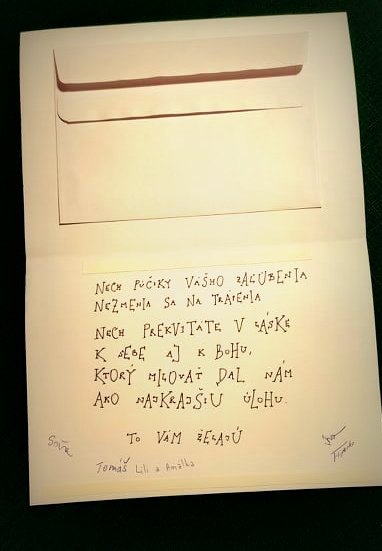 NECH PÚČIKY VÁŠHO ZAĽÚBENIA
NEZMENIA SA NA TRÁPENIA
NECH PREKVITÁTE V LÁSKE
K SEBE AJ K BOHU,
KTORÝ MILOVAŤ DAL NÁM
AKO NAJKRAJŠIU ÚLOHU.
TO VÁM ŽELAJÚ
Tomáš Lili a Amálka